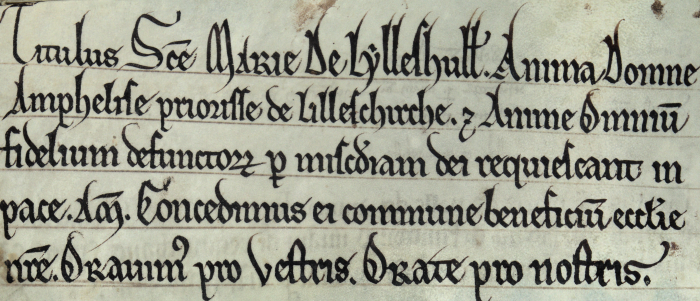 Titulus Sc̄e Marie De Lẏlleshull'. Anima Domne
Amphelise priorisse de Lilleschirche. ⁊ Anime Omniū
fidelium defunctoꝝ ꝑ mis̄cdiam dei requiescant in
pace. Am̄. Concedimus ei commune beneficiū eccl'ie
nr̄e. Orauim᷒ pro vestris. Orate pro nostris.